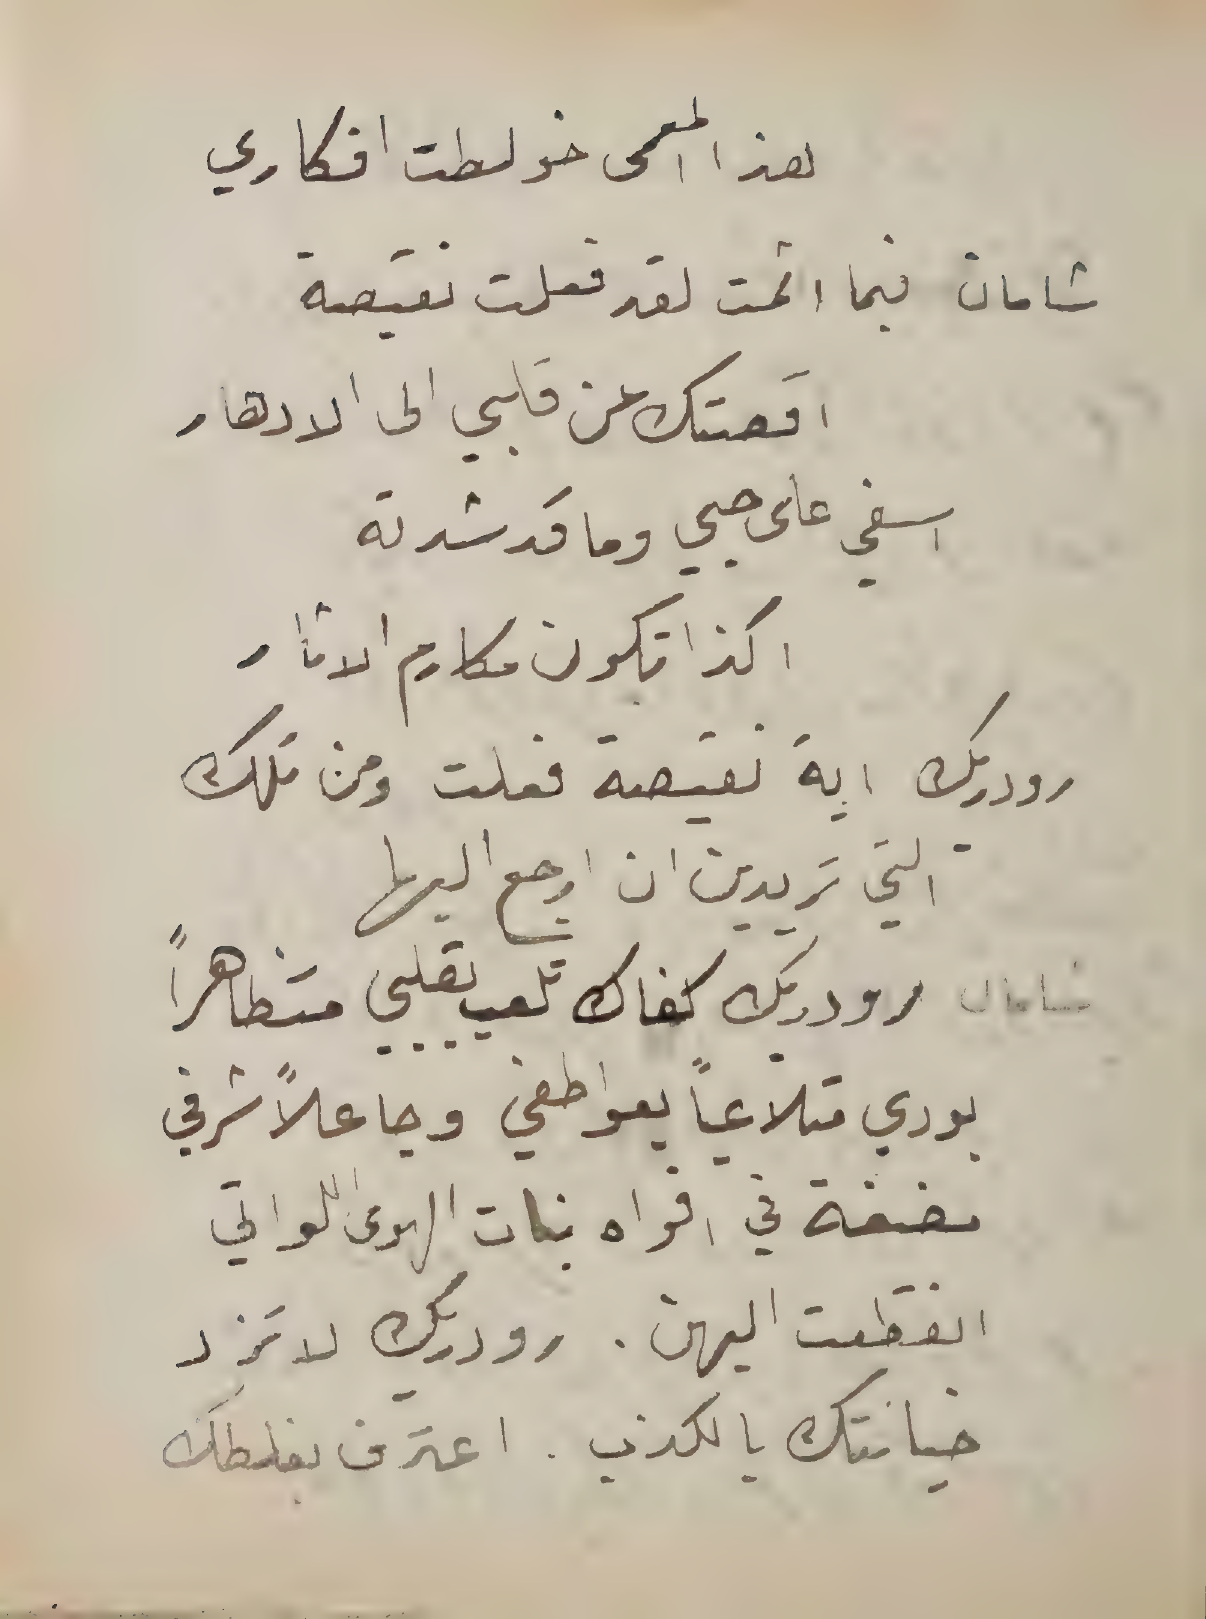 لهذا المعمى خولطت افكاري
شامان فيما اثمت لقد فعلت نقيصة
اقصتك عن قلبي الى الادهار
اسفي على حبي وما قد شدته
اكذا تكون مكارم الاثار
رودريك اية نقيصة فعلت ومن تلك
التي تريدين ان ارجع اليها
شامان رودريك كفاك تلعب بقلبي متظاهراً
بودي متلاعباً بعواطفي وجاعلاً شرفي
مضغة في افواه بنات الهوى اللواتي
انقطعت اليهن . رودريك لا تزد
خيانتك بالكذب . اعترف بغلطك